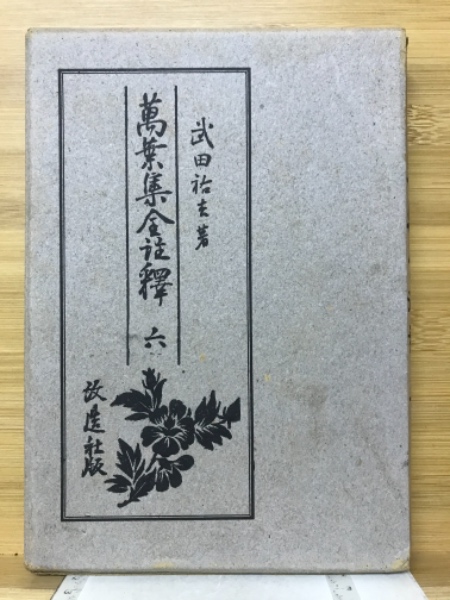 武田祐吉著
萬葉集全註釋 六
改造社版